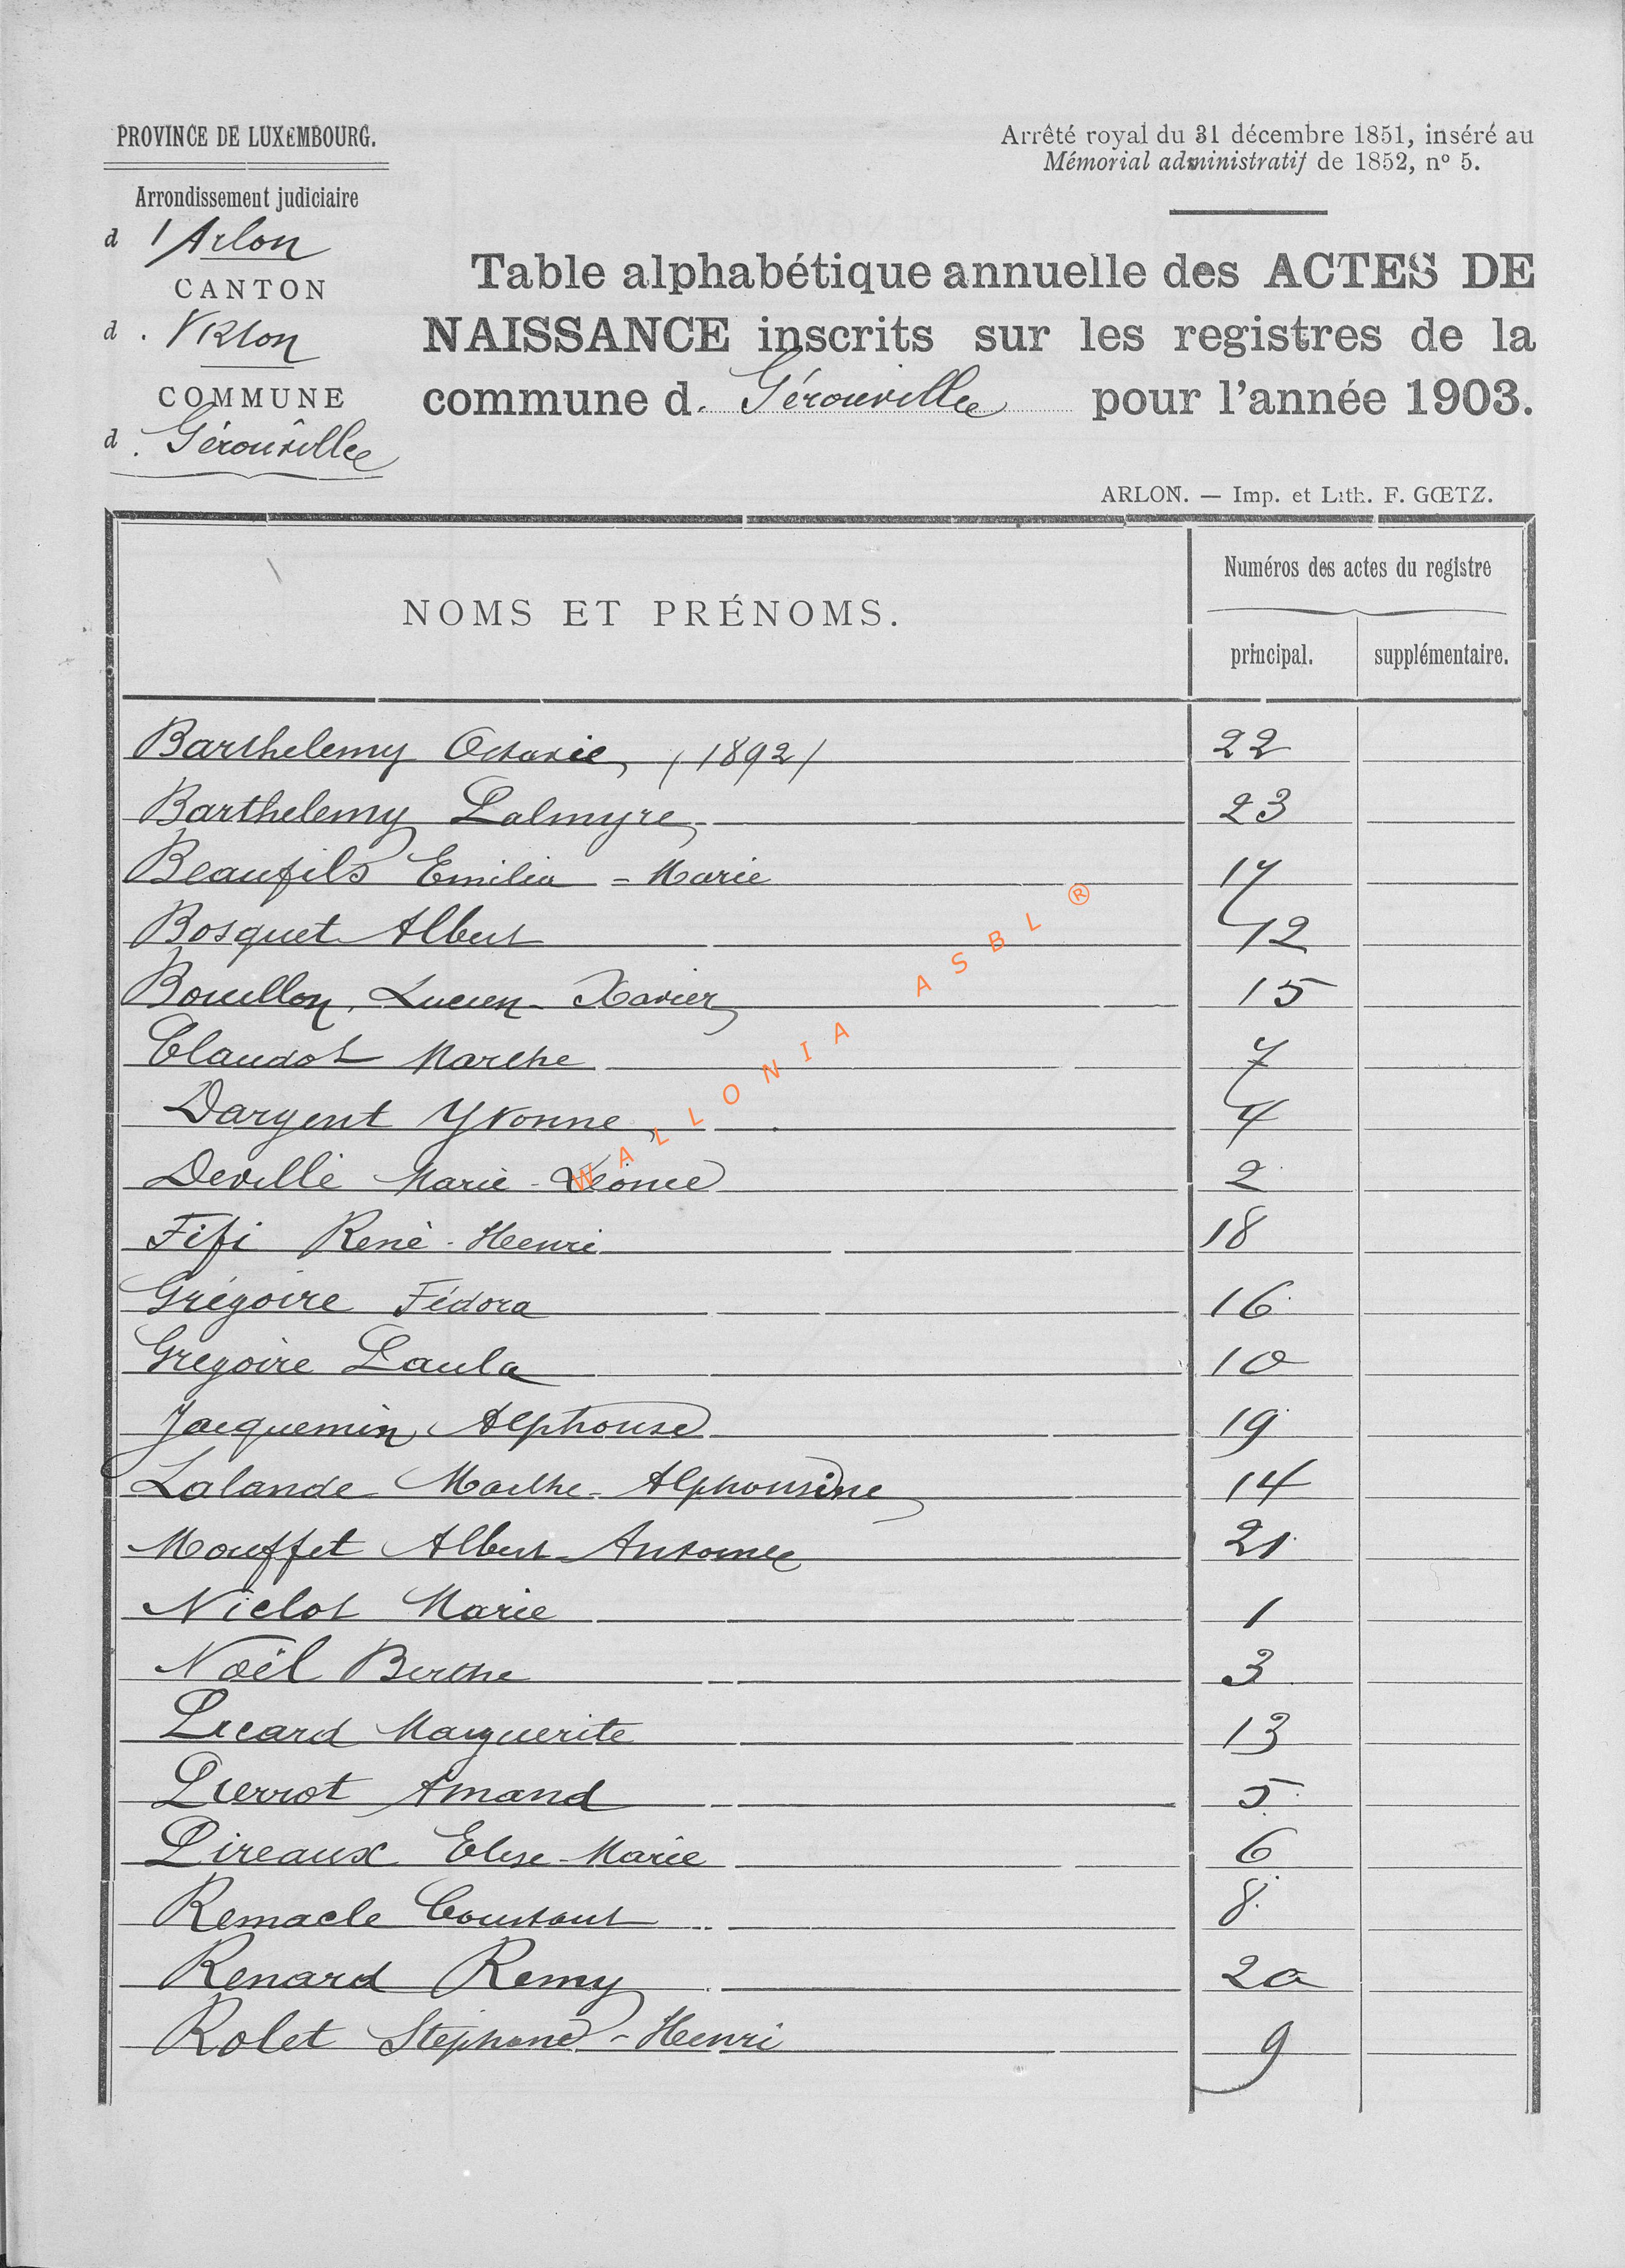 PROVINCE DE LUXEMBOURG.
Arrêté royal du 31 décembre 1851, inséré au
Mémorial administratif de 1852, nº 5.
Arrondissement judiciaire
d'Arlon
CANTON
d. Virton
COMMUNE
d. Gérouville
Table alphabétique annuelle des ACTES DE
NAISSANCE inscrits sur les registres de la
commune d. Gérouville pour l'année 1903.
ARLON. — Imp. et Lith. F. GŒTZ.
NOMS ET PRÉNOMS.
Numéros des actes du registre
principal. supplémentaire.
Barthelemy Octavie, (1892) 22
Barthelemy Palmyre 23
Beaufils Emilia - Marie 17
Bosquet Albert 12
Bouillon, Lucien - Xavier 15
Claudot Marthe 7
Dargent Yvonne 4
Deville Marie - Léonie 2
Fifi René - Henri 18
Grégoire Fédora 16
Gregoire Paula 10
Jacquemin Alphonse 19
Lalande Marthe - Alphonsine 14
Mouffet Albert - Antoine 21
Niclot Marie 1
Noël Berthe 3
Picard Marguerite 13
Pierrot Amand 5
Pireaux Elise - Marie 6
Remacle Constant 8
Renard Remy 20
Rolet Stéphane - Henri 9
WALLONIA ASBL ®